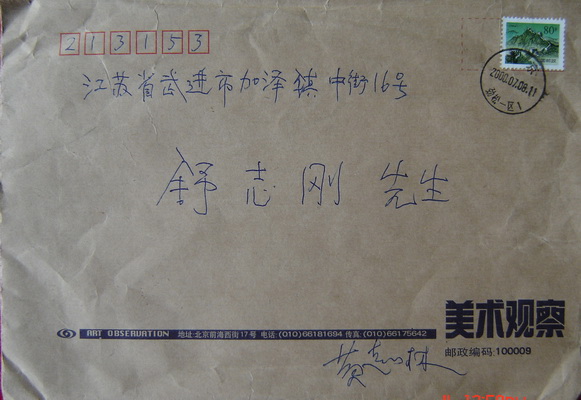 213153
80分
江苏省武进市加泽镇中街16号
2000.07.08.11
舒志刚 先生
美术观察
ART OBSERVATION 地址:北京前海西街17号 电话:(010)66181694 传真:(010)66175642
邮政编码:100009